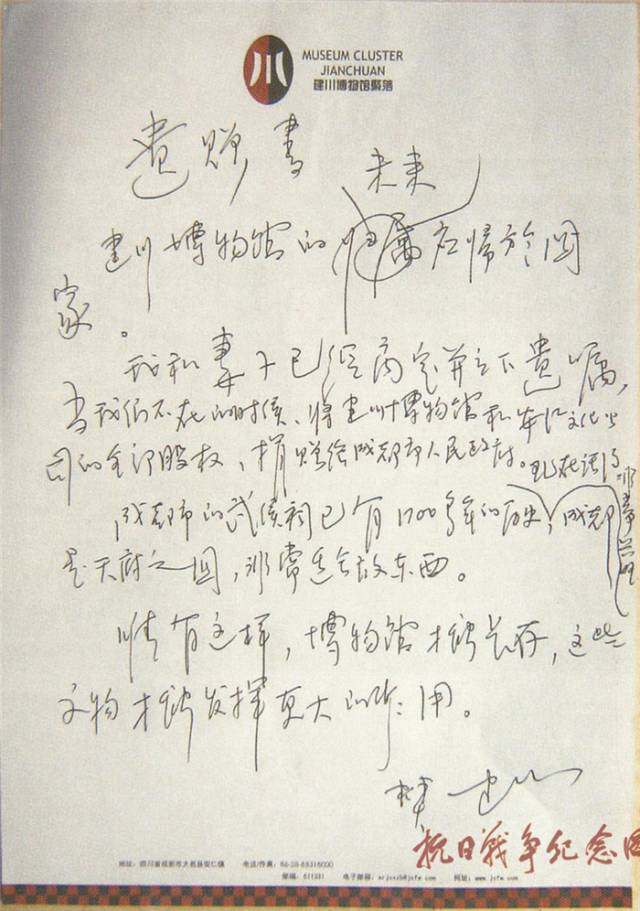 MUSEUM CLUSTER
JIANCHUAN
建川博物馆聚落
遗赠书
未来
建川博物馆的归属应归于国
家。
我和妻子已经商定并立下遗嘱,
当我们不在的时候、将建川博物馆和安仁文化公
司的全部股权,捐赠给成都市人民政府。现在活得
成都市的武侯祠已有1700多年的历史,成都
是天府之国,非常适合放东西。
惟有这样,博物馆才能长存,这些
文物才能发挥更大的作用。
樊建川
抗日战争纪念
地址:四川省成都市大邑县安仁镇 电话/传真:86-28-88318000
邮编:611331 电子邮箱: 网址:www.jcfw.com